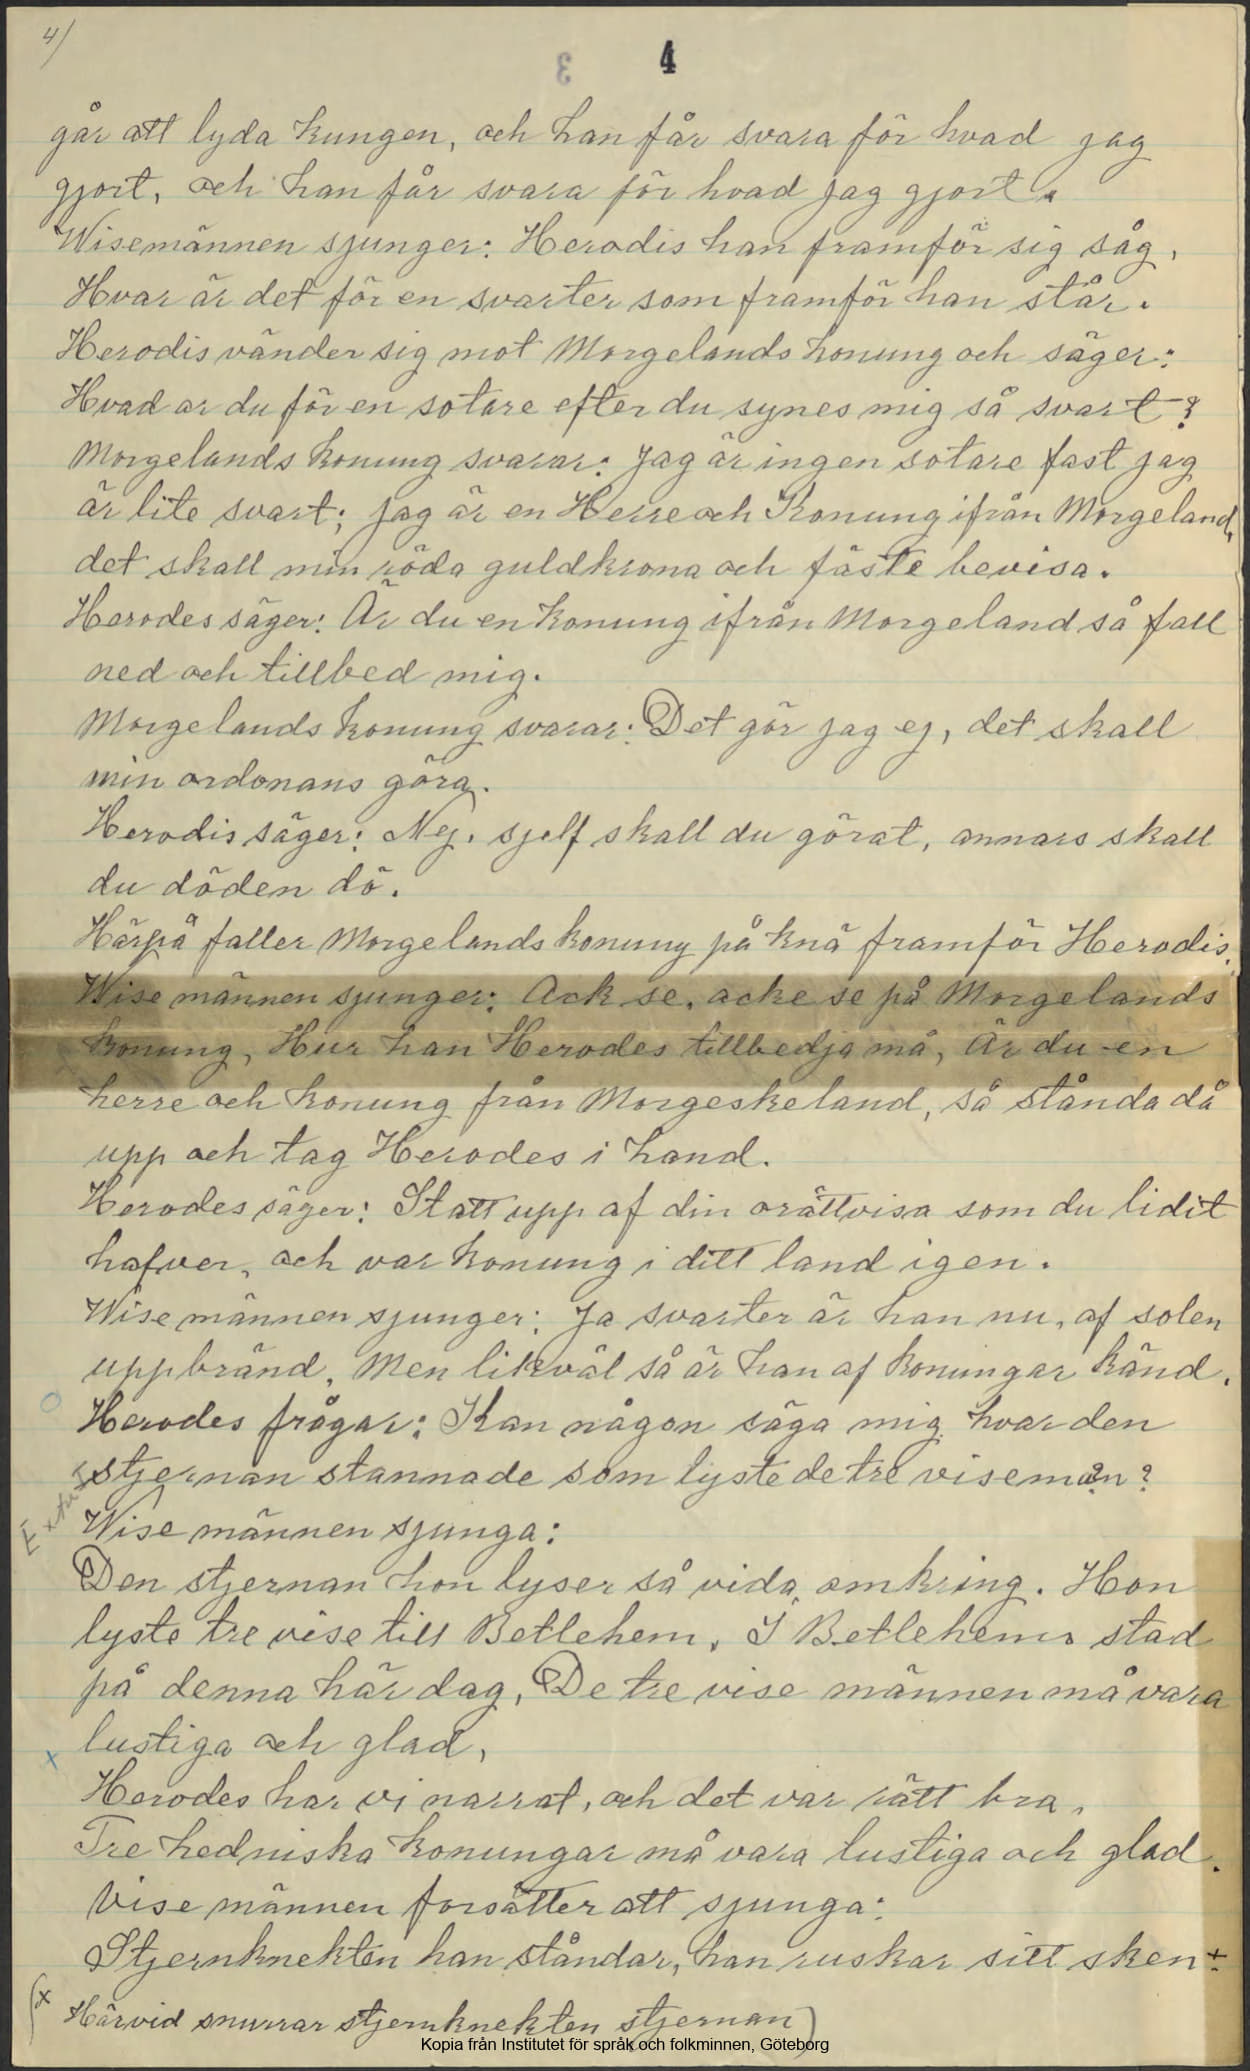 4/
3 4
går att lyda kungen, och han får svara för hvad jag
gjort, och han får svara för hvad jag gjort.
Wisemännen sjunger: Herodis han framför sig såg,
Hvar är det för en svarter som framför han står.
Herodis vänder sig mot Morgelands konung och säger:
Hvad ar du för en sotare efter du synes mig så svart?
Morgelands konung svarar: Jag är ingen sotare fast jag
är lite svart; jag är en Herre och Konung ifrån Morgeland,
det skall min röda guldkrona och fäste bevisa.
Herodes säger: Är du en konung ifrån Morgeland så fall
ned och tillbed mig.
Morgelands konung svarar: Det gör jag ej, det skall
min ordonans göra.
Herodis säger: Nej, sjelf skall du görat, annars skall
du döden dö.
Härpå faller Morgelands konung på knä framför Herodis.
Wise männen sjunger: Ack se, acke se på Morgelands
konung, Hur han Herodes tillbedja må, Är du en
herre och konung från Morgeskeland, så stånda då
upp och tag Herodes i hand.
Herodes säger: Statt upp af din orättvisa som du lidit
hafver, och var konung i ditt land igen.
Wise männen sjunger: Ja svarter är han nu, af solen
uppbränd, Men likväl så är han af konungar känd.
Herodes frågar: Kan någon säga mig hvar den
stjernan stannade som lyste de tre visemän?
Extra
Wise männen sjunga:
Den stjernan hon lyser så vida omkring. Hon
lyste tre vise till Betlehem, I Betlehems stad
på denna här dag, De tre vise männen må vara
x lustiga och glad,
Herodes har vi narrat, och det var rätt bra,
Tre hedniska konungar må vara lustiga och glad.
Vise männen forsätter att sjunga:
Stjernknekten han ståndar, han ruskar sitt sken x
(x Härvid snurrar stjernknekten stjernan)
Kopia från Institutet för språk och folkminnen, Göteborg